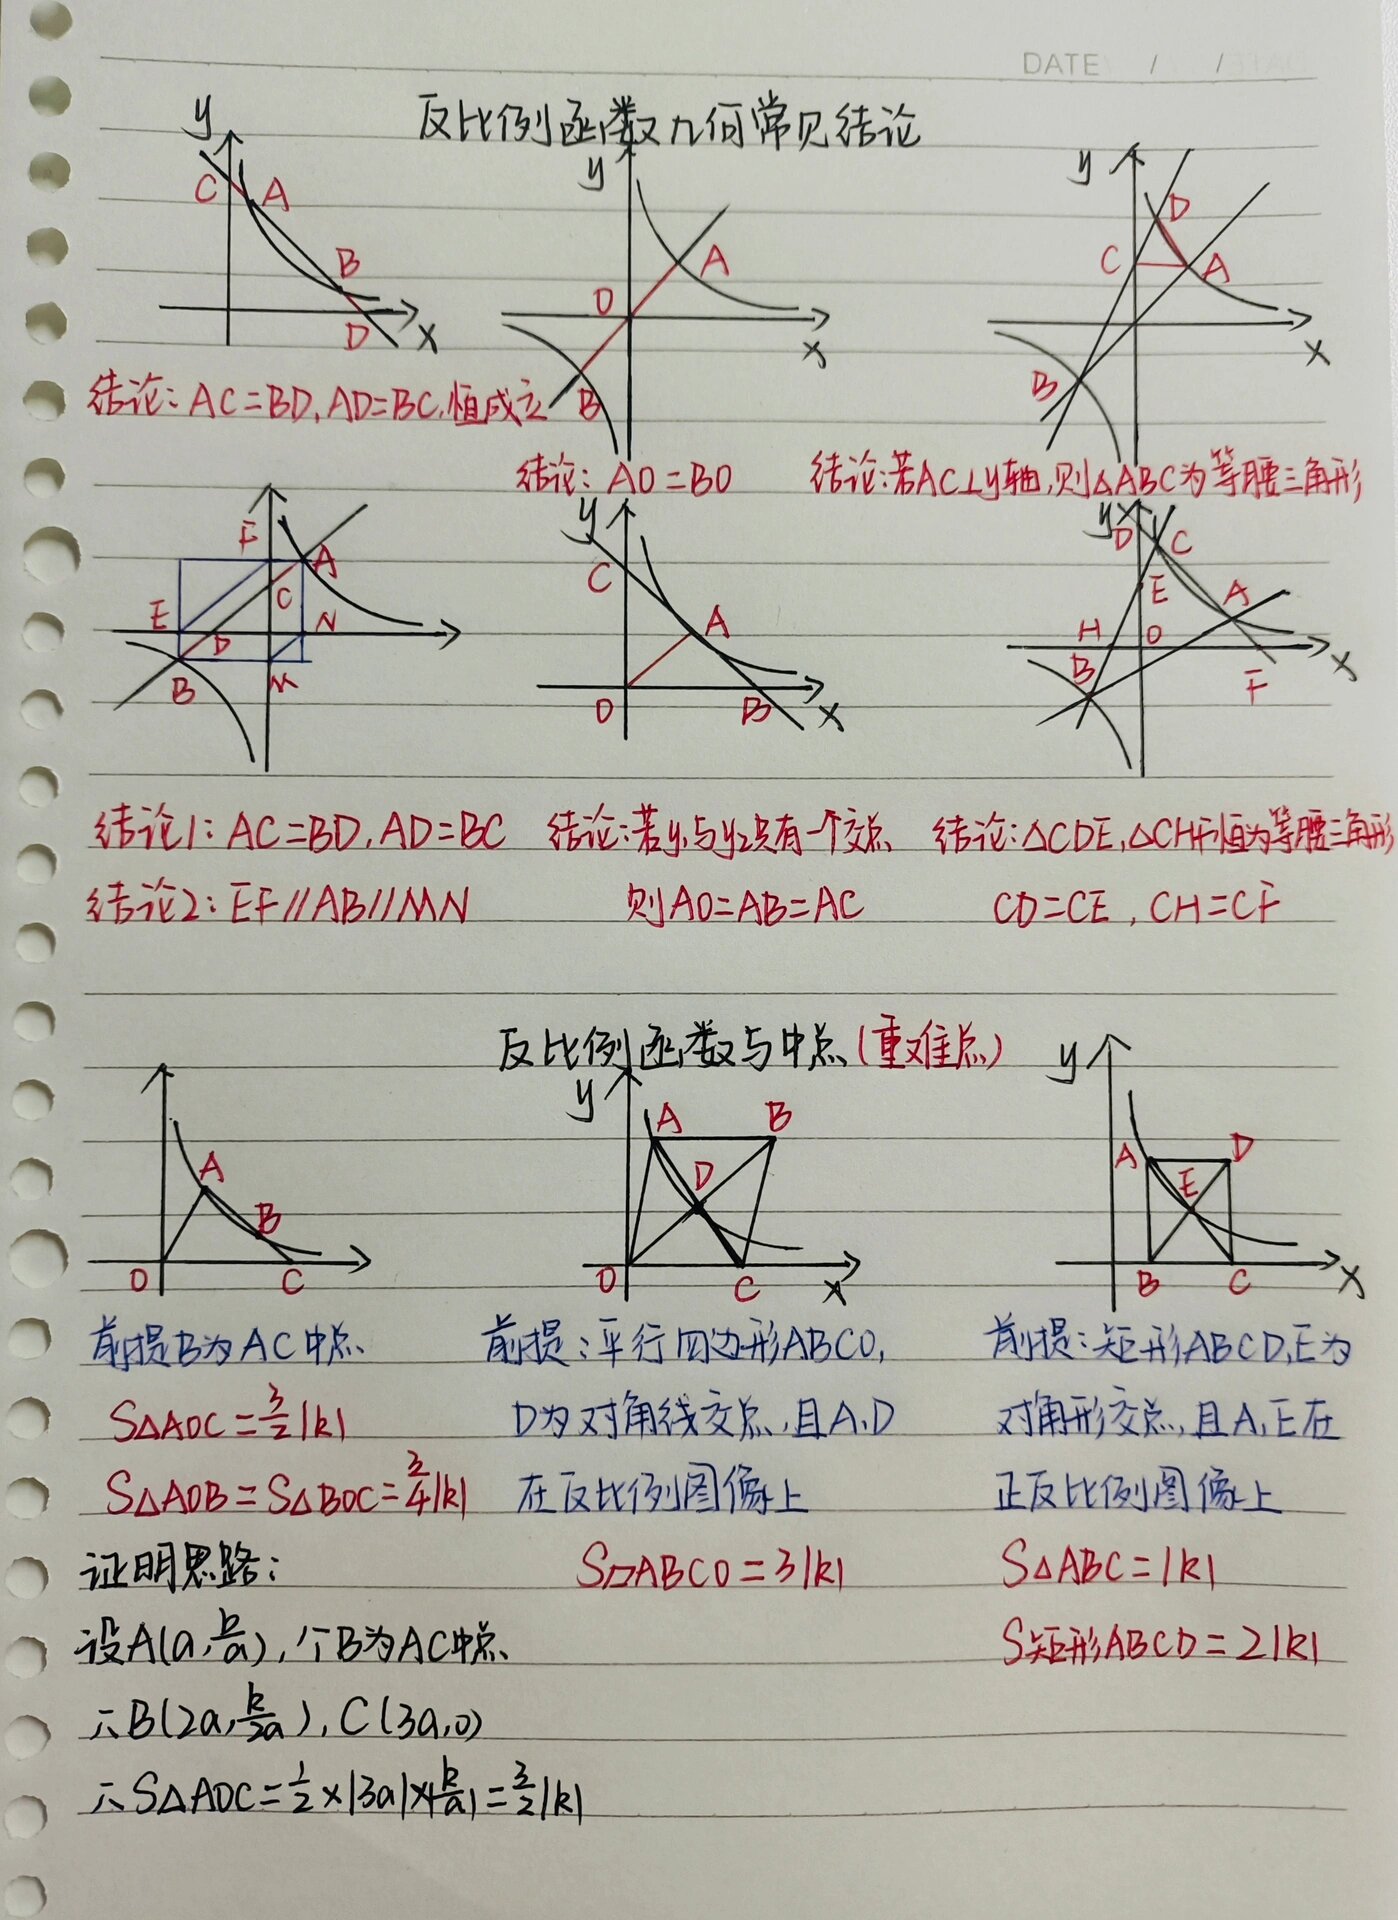 DATE / /
反比例函数几何常见结论
y C A B D x
y A O B x
y D C A B x
结论:AC=BD,AD=BC,恒成立
结论:AO=BO
结论:若AC⊥y轴,则△ABC为等腰三角形
F A C E D N B M
y C A O B x
y D C E A H O B F x
结论1:AC=BD,AD=BC
结论2:EF//AB//MN
结论:若y₁与y₂只有一个交点
则AO=AB=AC
结论:△CDE,△CHF恒为等腰三角形
CD=CE,CH=CF
反比例函数与中点(重难点)
A B O C
y A B D O C x
y A D E B C x
前提B为AC中点
S△AOC=3/2|k|
S△AOB=S△BOC=3/4|k|
证明思路:
设A(a,k/a),个B为AC中点
∴B(2a,k/2a),C(3a,0)
∴S△AOC=1/2×|3a|×|k/a|=3/2|k|
前提:平行四边形ABCO,
D为对角线交点,且A,D
在反比例图像上
S▱ABCO=3|k|
前提:矩形ABCD,E为
对角形交点,且A,E在
正反比例图像上
S△ABC=|k|
S矩形ABCD=2|k|